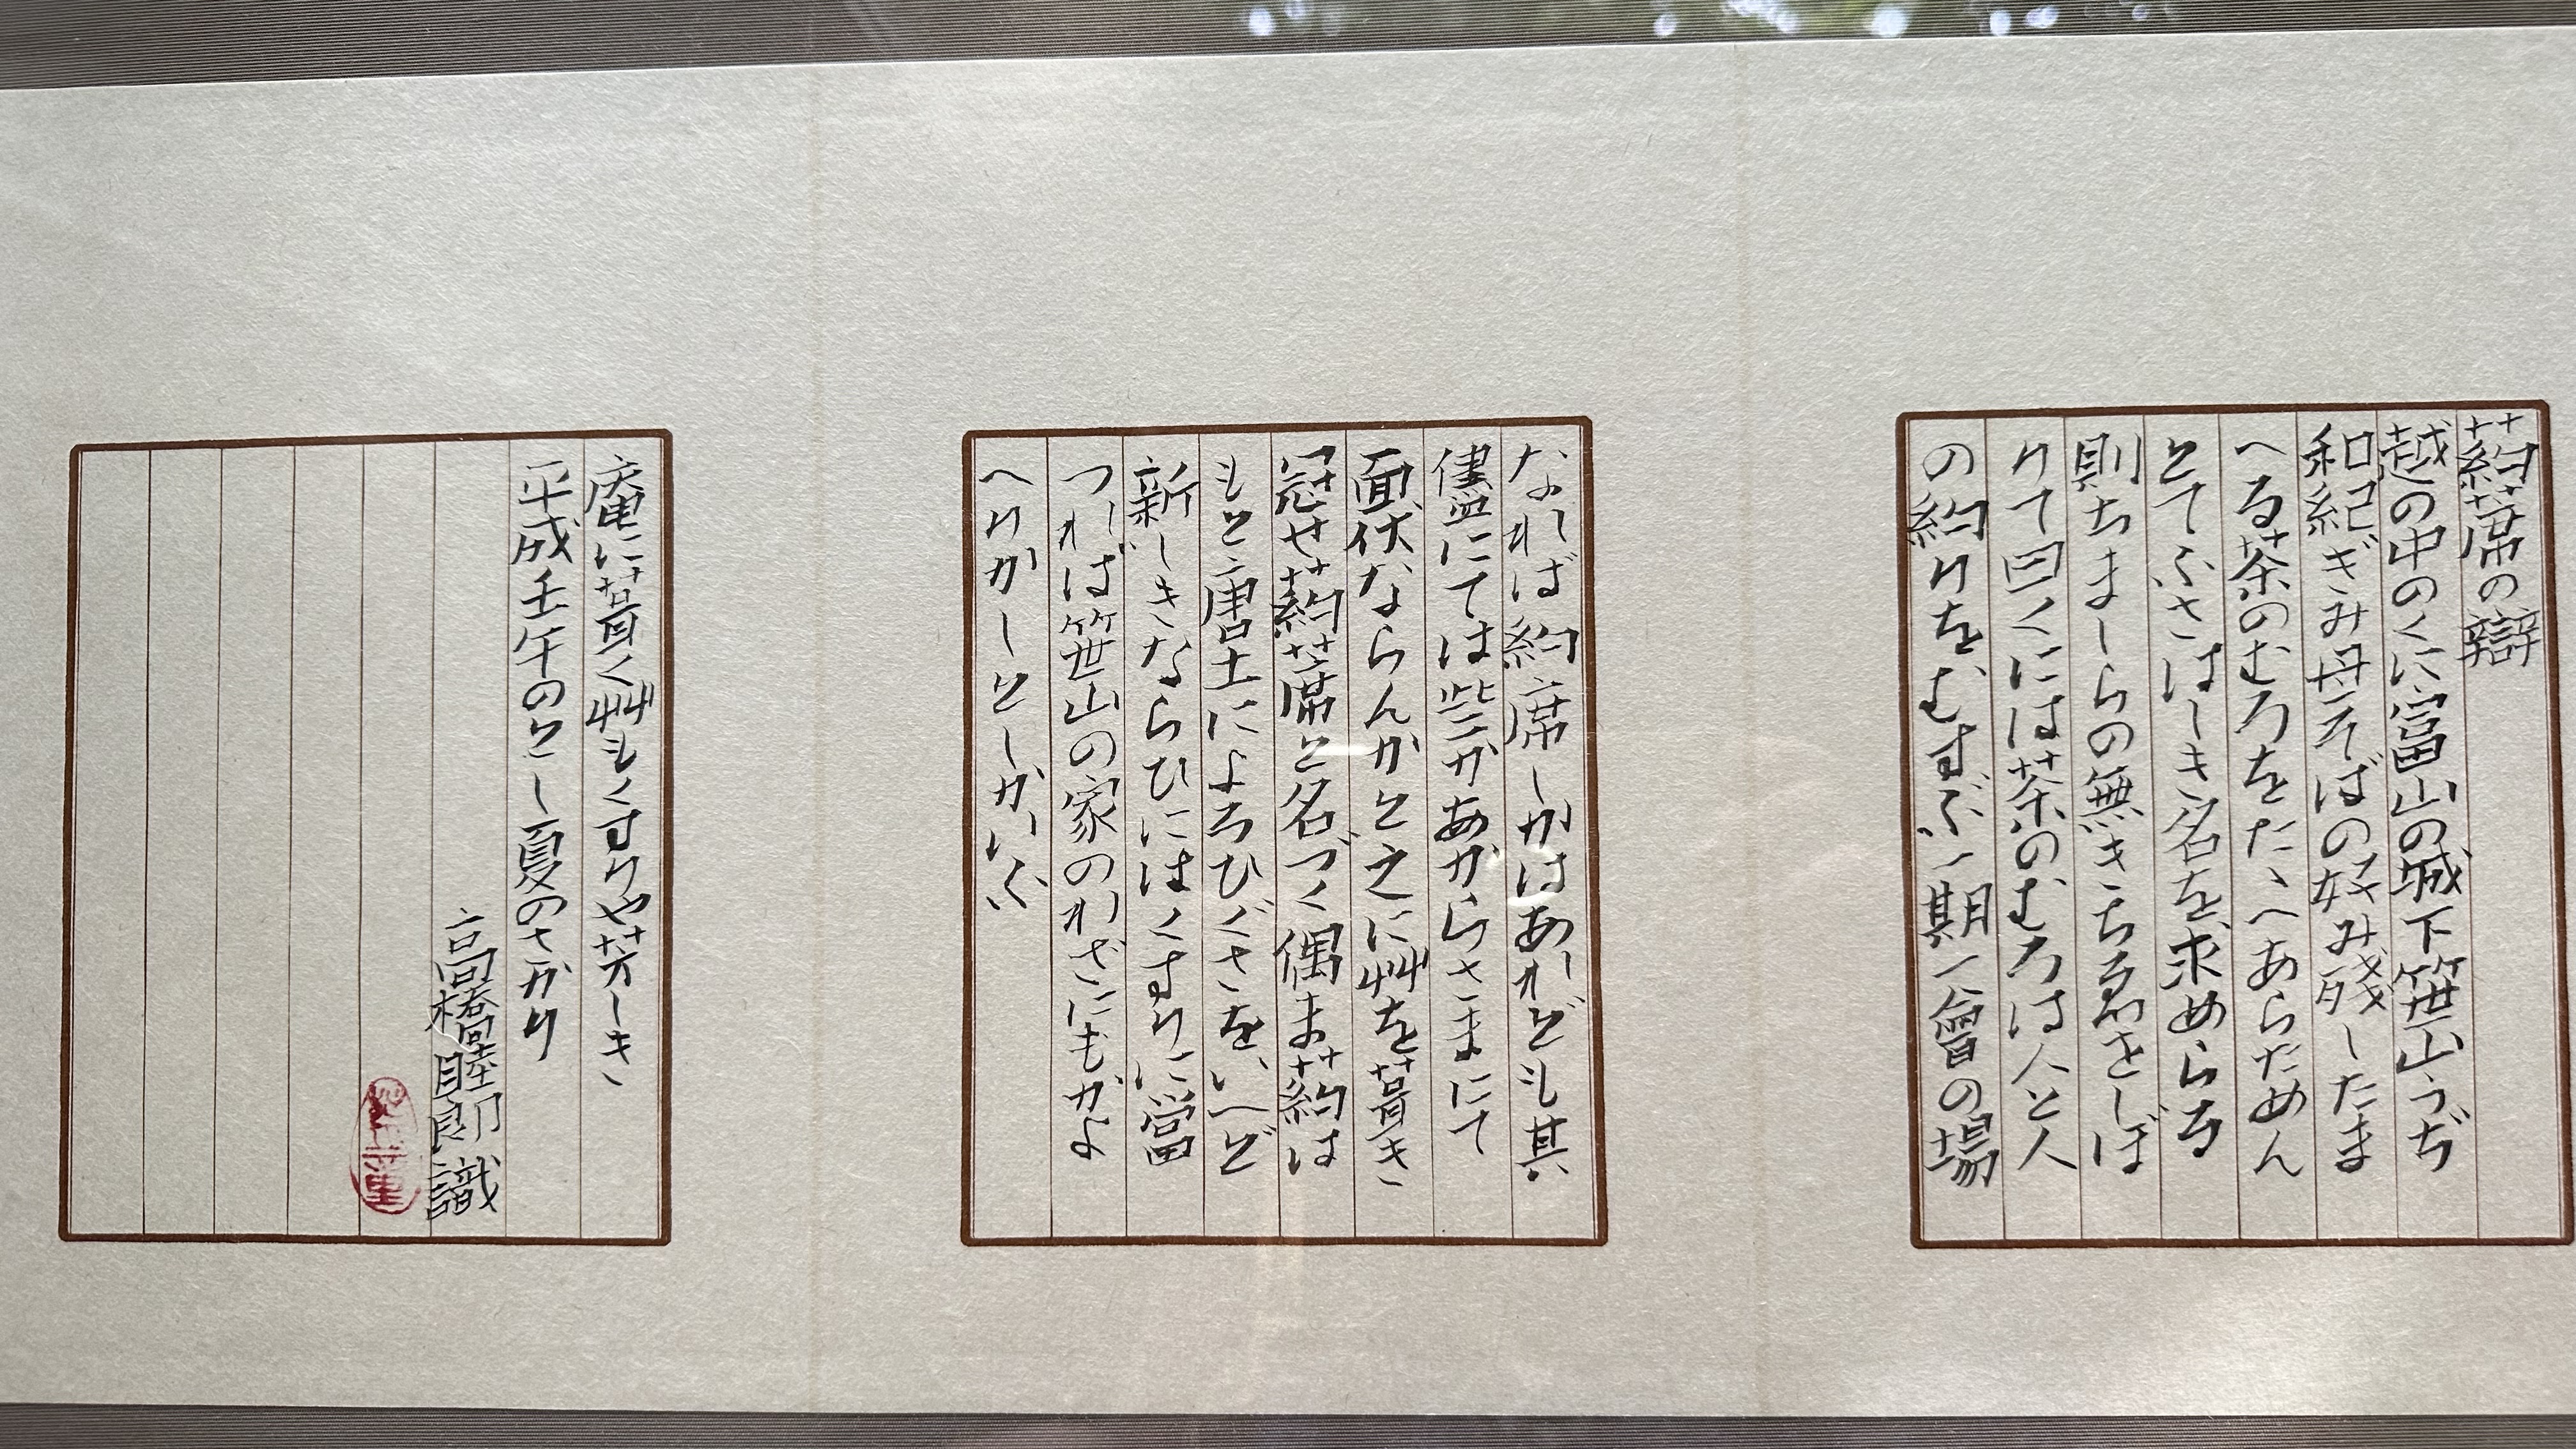 葯蓆の辯
越の中のくに富山の城下笹山うぢ
和紀ぎみ母そばの好み残したま
へる茶のむろをたゝへあらためん
とてふさはしき名を求めらる
則ちましらの無きちゑをしぼ
りて曰くには茶のむろは人と人
の約りをむすぶ一期一會の場
なれば約席しかはあれども其
儘にては些かあからさまにて
面伏ならんかと之に艸を葺き
冠せ葯蓆と名づく偶ま葯は
もと唐土によろひぐさをいへど
新しきならひにはくすりに當
つれば笹山の家のわざにもかよ
へりかしとしかいふ
庵に葺く艸もくすりや芳しき
平成壬午のとし夏のさかり
高橋睦郎識